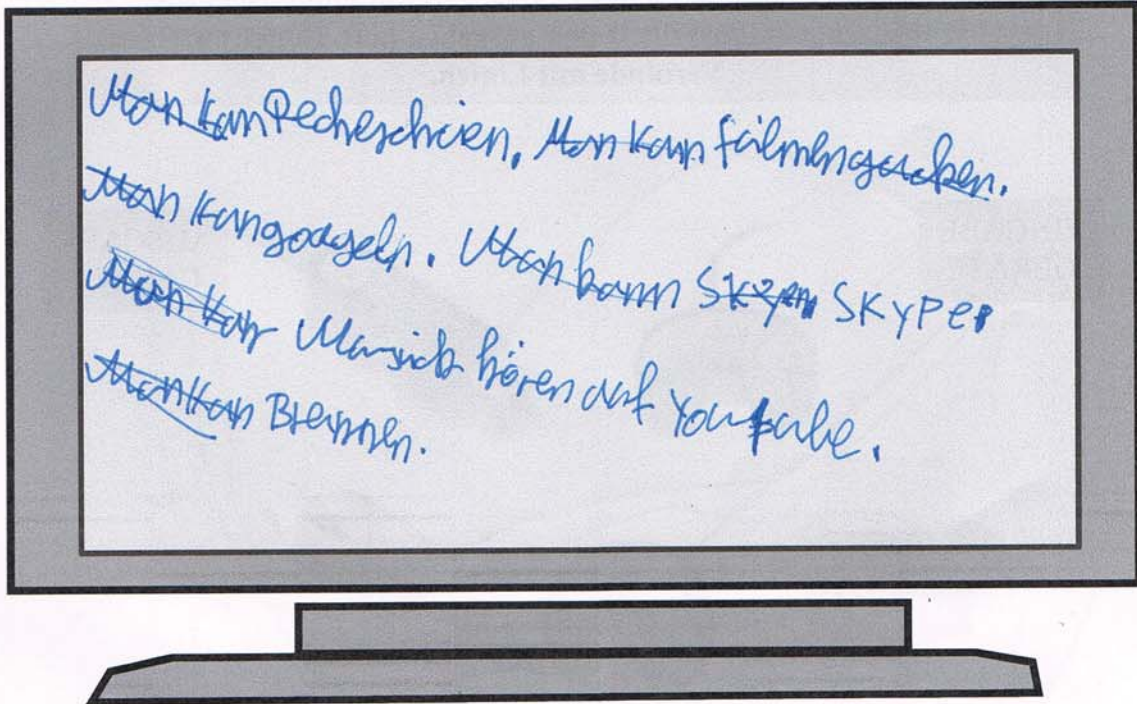 Man kan Recherchieren. Man kan filmengucken.
Man kangoogeln. Man kann Skypen SKYPEN
Man kan Musick hören auf Youtube.
Man kan Brennen.